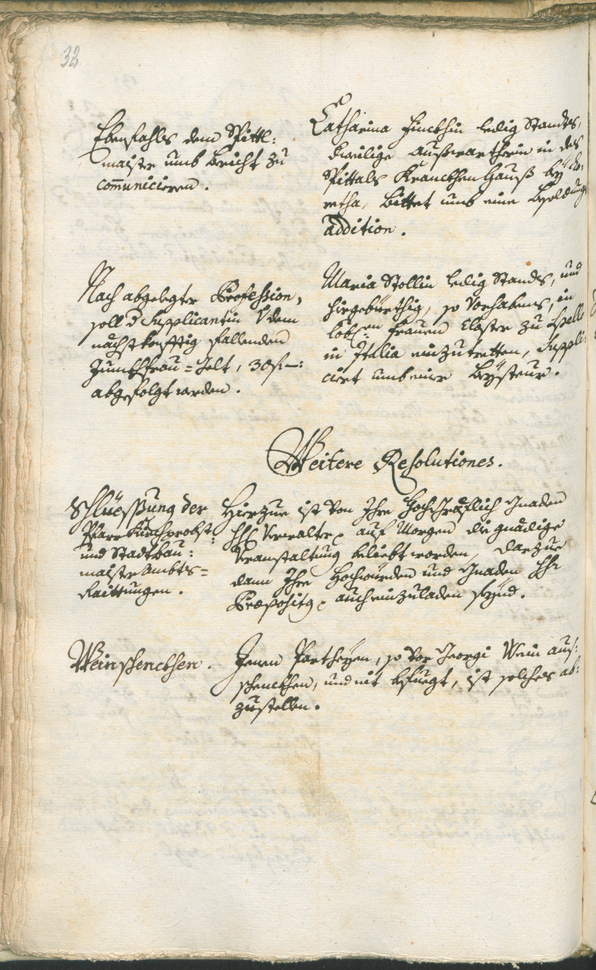 32
Ebenfahls dem Spittl:
maister umb bericht zu
com̅uniciren.
Catharina Finckhin ledig Standts,
dermalige aufwartherin in des
Spittals Kranckhen Hauß bey
retha, bittet umb eine Besoldungs
addition.
Nach abgelegter Profession,
soll d Supplicantin dem
nachst konfftig fallenden
Junckhfrau=Gelt, 30 f –:
abgefolgt werden.
Maria Stollin ledig Stands, und
hirgebürthig, so Vorhabens, in
löbl: Frauen Closter zu
in Italia einzutretten, Suppli:
ciret umb eine Beysteur.
Weitere Resolutiones.
Schlüessung der
Pfarrkirchprobst:
und Stadtbau:
maister Ambts=
Raittungen.
Hierzue ist von Ihro Hochfreyherrlich Gnaden
Herrn Verwalter auf Morgen die gnädige
Veranstaltung beliebt worden, darzue
dann Ihro Hochwürden und Gnaden Herr
Præpositus auch einzuladen seynd.
Weinschenckhen.
Jenen Partheyen, so vor Georgi Wein aus:
schenckhen, und nit befuegt, ist solches ab:
zustellen.